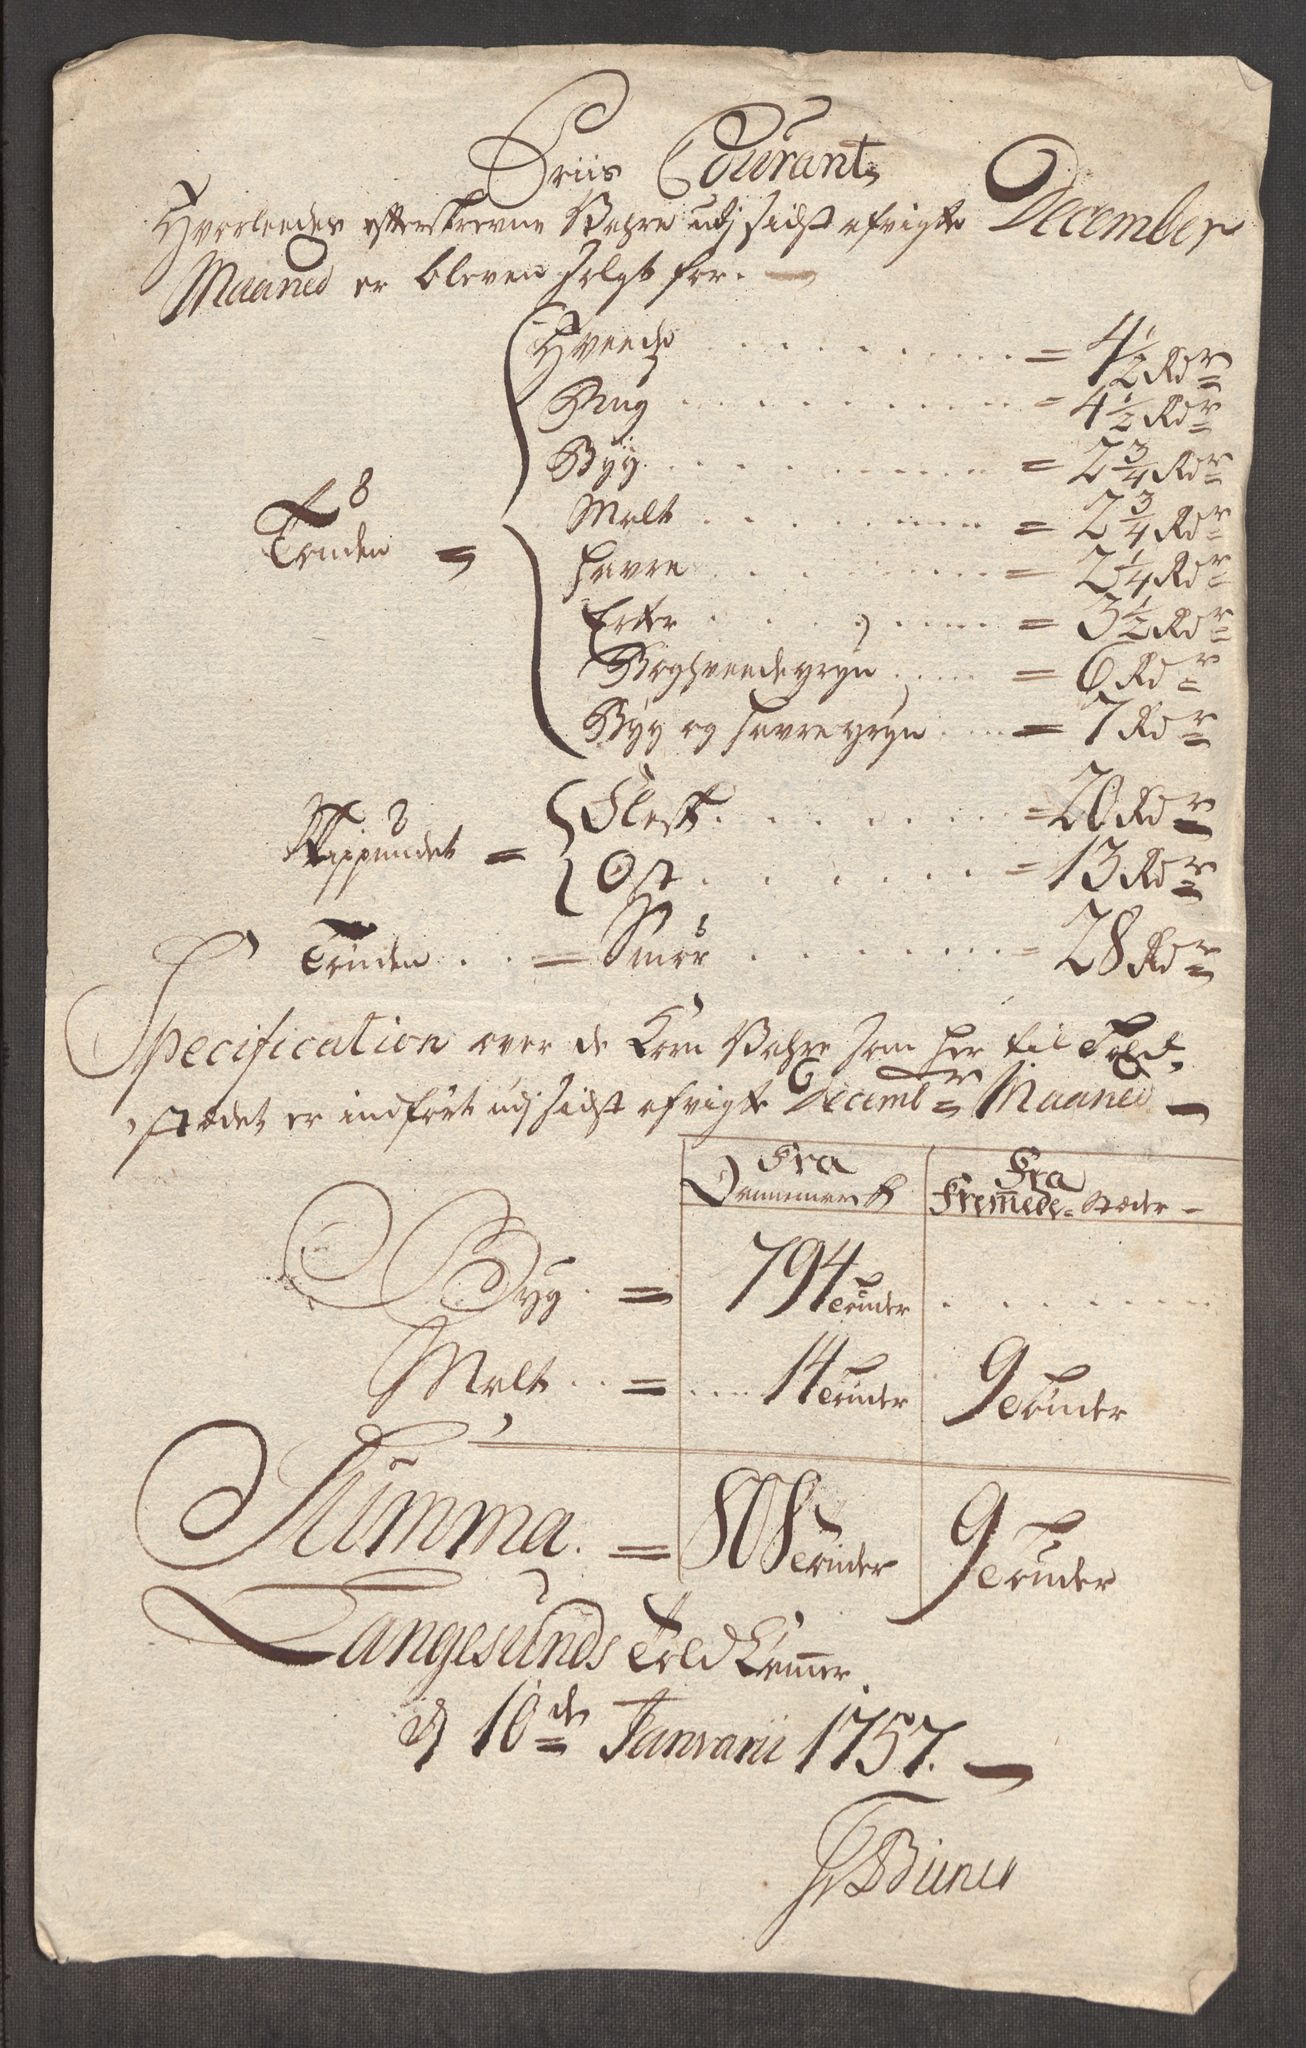 Priis Courant
Hvorleedes efterskrevne Vahre udj sidst afvigte December
Maaned er bleven solgt for.
Hveede = 4 1/2 Rdr
Rug = 4 1/2 Rdr
Byg = 2 3/4 Rdr
Malt = 2 3/4 Rdr
Tønden =
Havre = 2 1/4 Rdr
Erter = 3 1/2 Rdr
Boghveedegryn = 6 Rdr
Byg og Havregryn = 7 Rdr
Flesk = 20 Rdr
Skippundet =
Ost = 13 Rdr
Tønden = Smør = 28 Rdr
Specification over de Korn Vahre som her til Told-
stædet er indført udj sidst afvigte Decembr Maaned
Fra Fra
Dannemark Fremede Stæder
Byg = 794 Tønder
Malt = 14 Tønder 9 Tønder
Summa = 808 Tønder 9 Tønder
Langesunds Told Kammer
d 10de Januarii 1757.